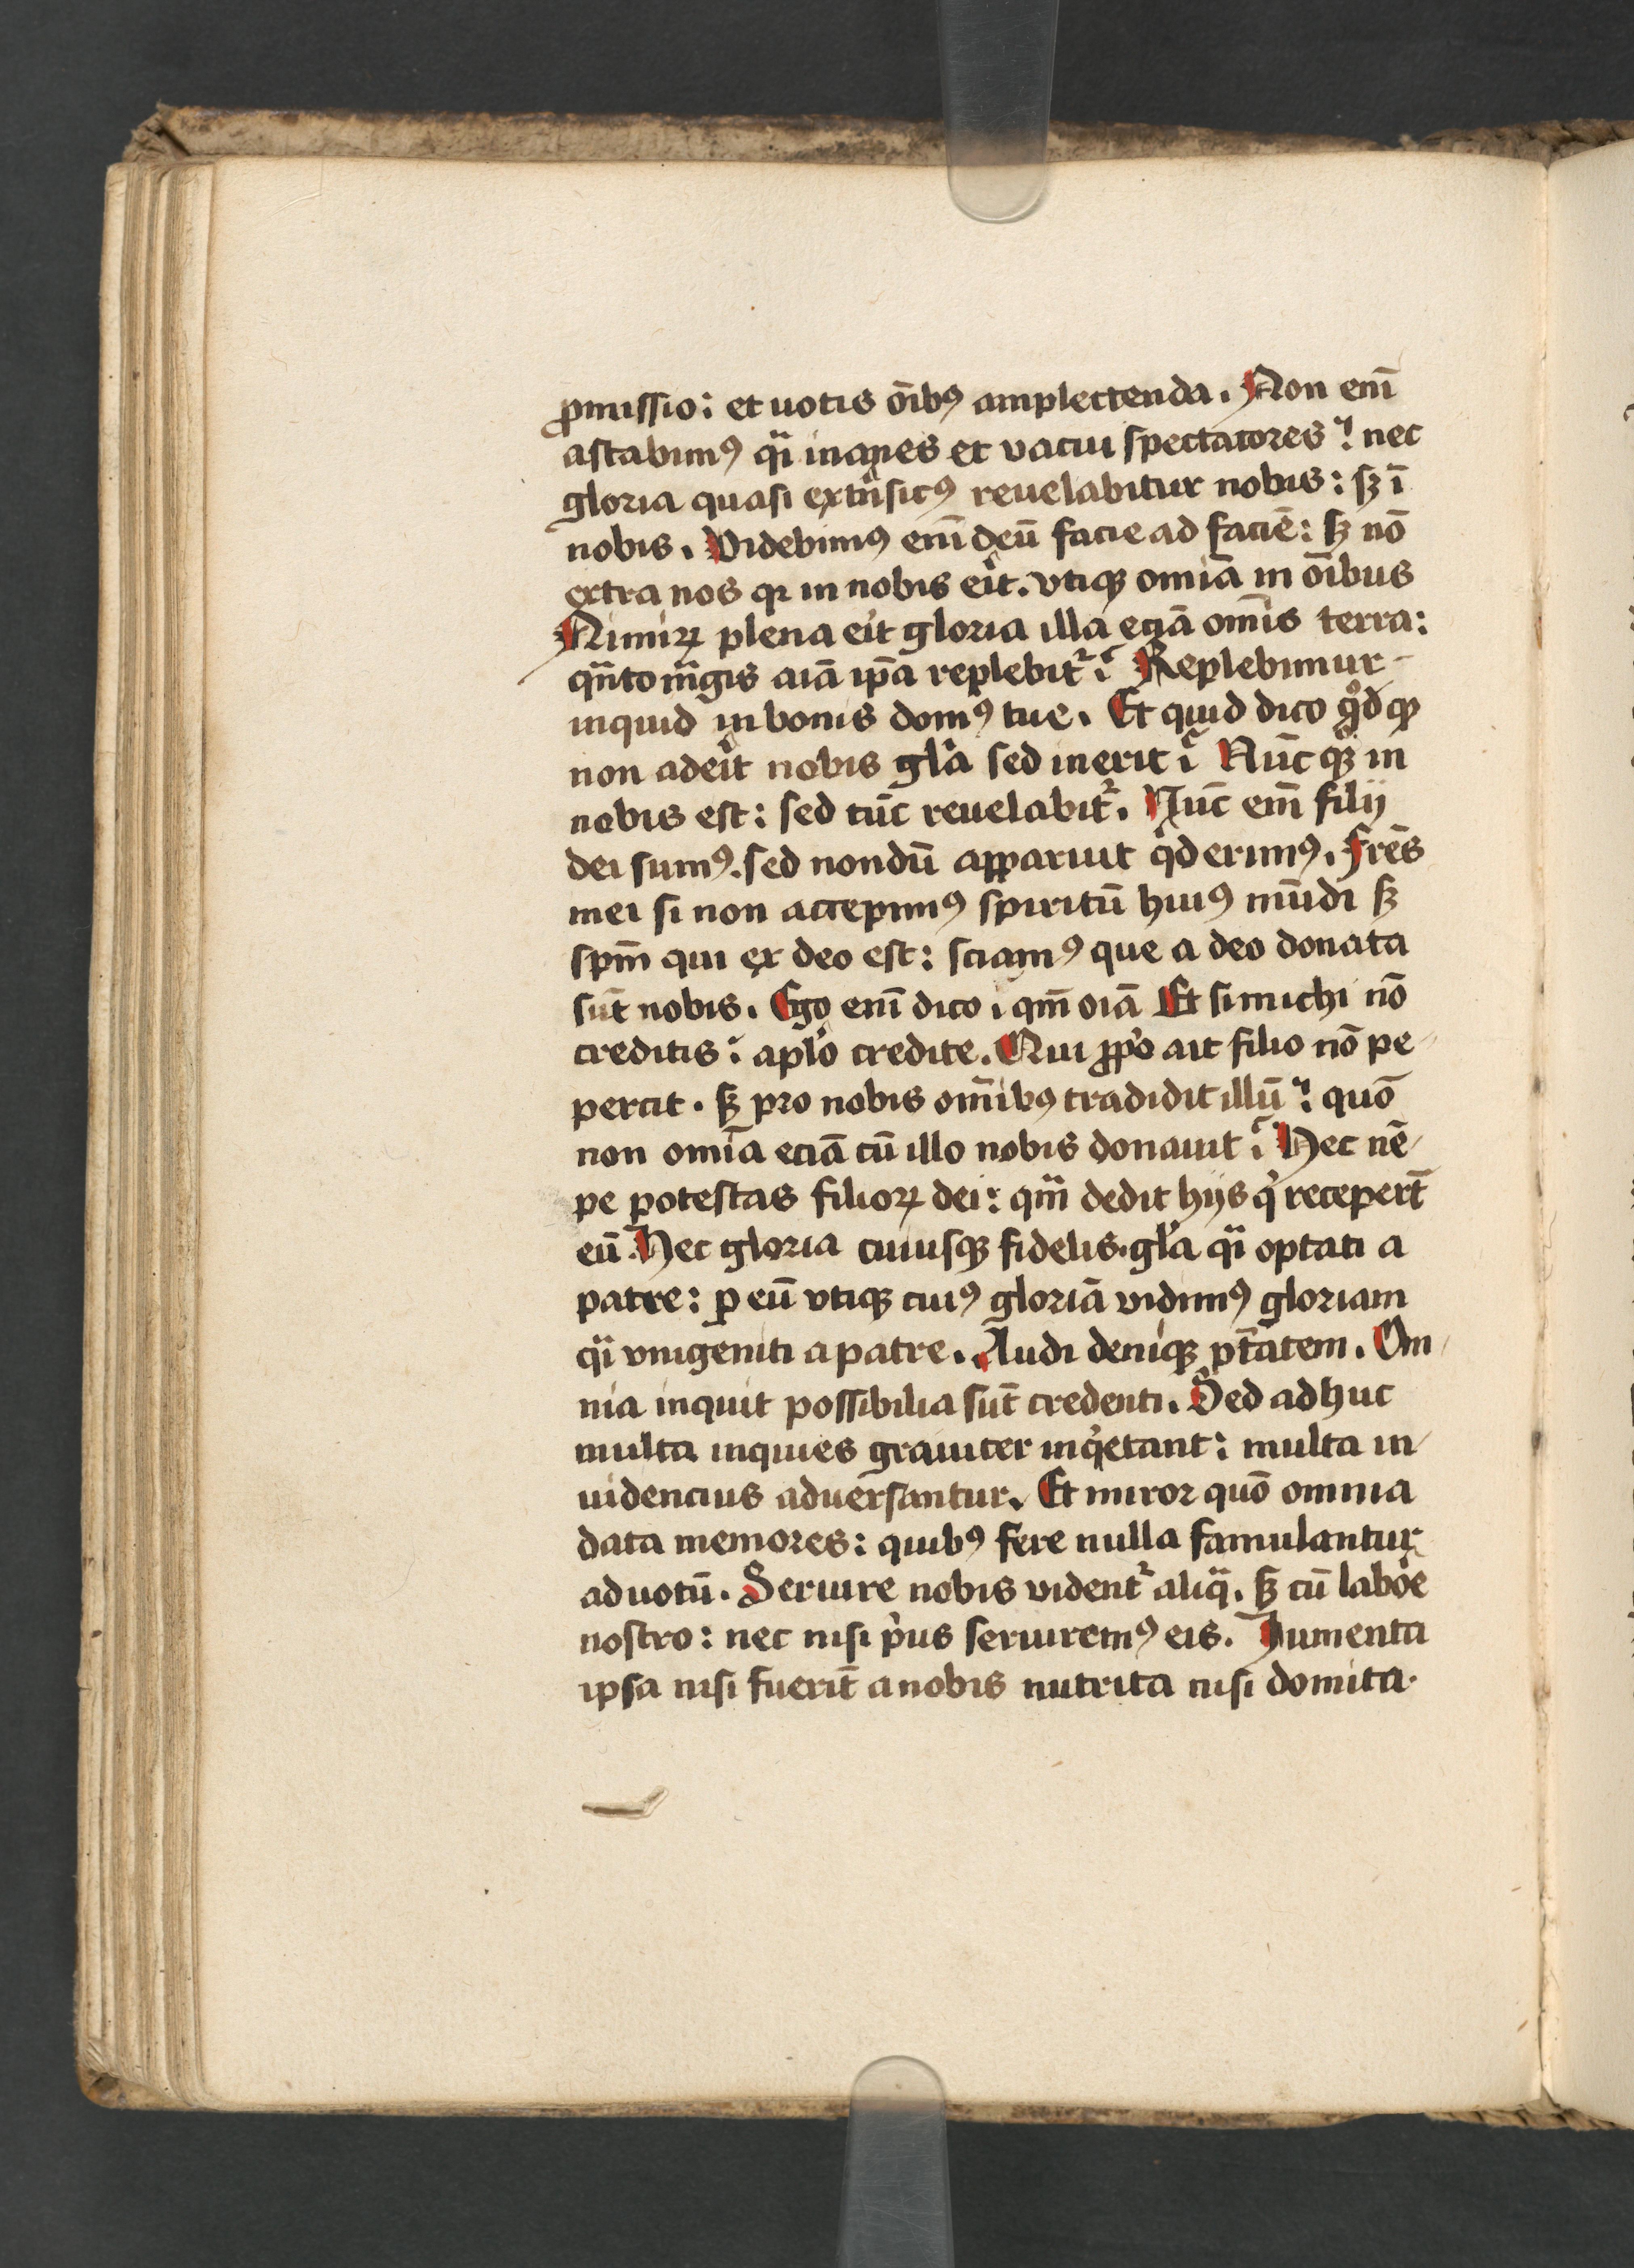 ꝓmissio: et uotis oībꝰ amplectenda. Non enī
astabimꝰ qͣi inanes et vacui spectatores: nec
gloria quasi extͥnsicꝰ reuelabitur nobis: sꝫ ī
nobis. Videbimꝰ enī deū facie ad faciē: sꝫ nō
extra nos qꝛ in nobis eͥit. vtiqꝫ omīa in oībus
Nimiꝝ plena eͥit gloria illa eciā omīs terra:
qͣnto mͣgis aīa ip̄a replebitᷣ? Replebimur
inquid in bonis domꝰ tue. Et quid dico qͦd ꝙ
non adeͥit nobis gl̓a sed inerit? Nūc qͦqꝫ in
nobis est: sed tūc reuelabitᷣ. Nūc enī filij
dei sumꝰ. sed nondū apparuit qͥd erimꝰ. Frēs
mei si non accepimꝰ spiritū huiꝰ mūdi sꝫ
spm̄ qui ex deo est: sciamꝰ que a deo donata
sūt nobis. Ego enī dico: qm̄ oīa Et si michi nō
creditis: apl̓o credite. Qui ꝓpͥo ait filio nō pe-
percit. sꝫ pro nobis omībꝰ tradidit illū: quō
non omīa eciā cū illo nobis donauit? Hec nē-
pe potestas filioꝝ dei: qͣm dedit hijs qͥ recepert̄
eū. Hec gloria cuiusqꝫ fidelis. gl̓a qͣi optati a
patre: ꝑ eū vtiqꝫ cuiꝰ gloriā vidimꝰ gloriam
qͣi vnigeniti a patre. Audi deniqꝫ pt̄atem. Om-
nia inquit possibilia sūt credenti. Sed adhuc
multa inquies grauiter inqͥetant: multa in-
uidencius aduersantur. Et miror quō omnia
data memores: quibꝰ fere nulla famulantur
ad uotū. Seruire nobis videntᷣ aliqͣ. sꝫ cū laboͤe
nostro: nec nisi pͥus seruiremꝰ eis. Jumenta
ipsa nisi fuerīt a nobis nutrita nisi domita.